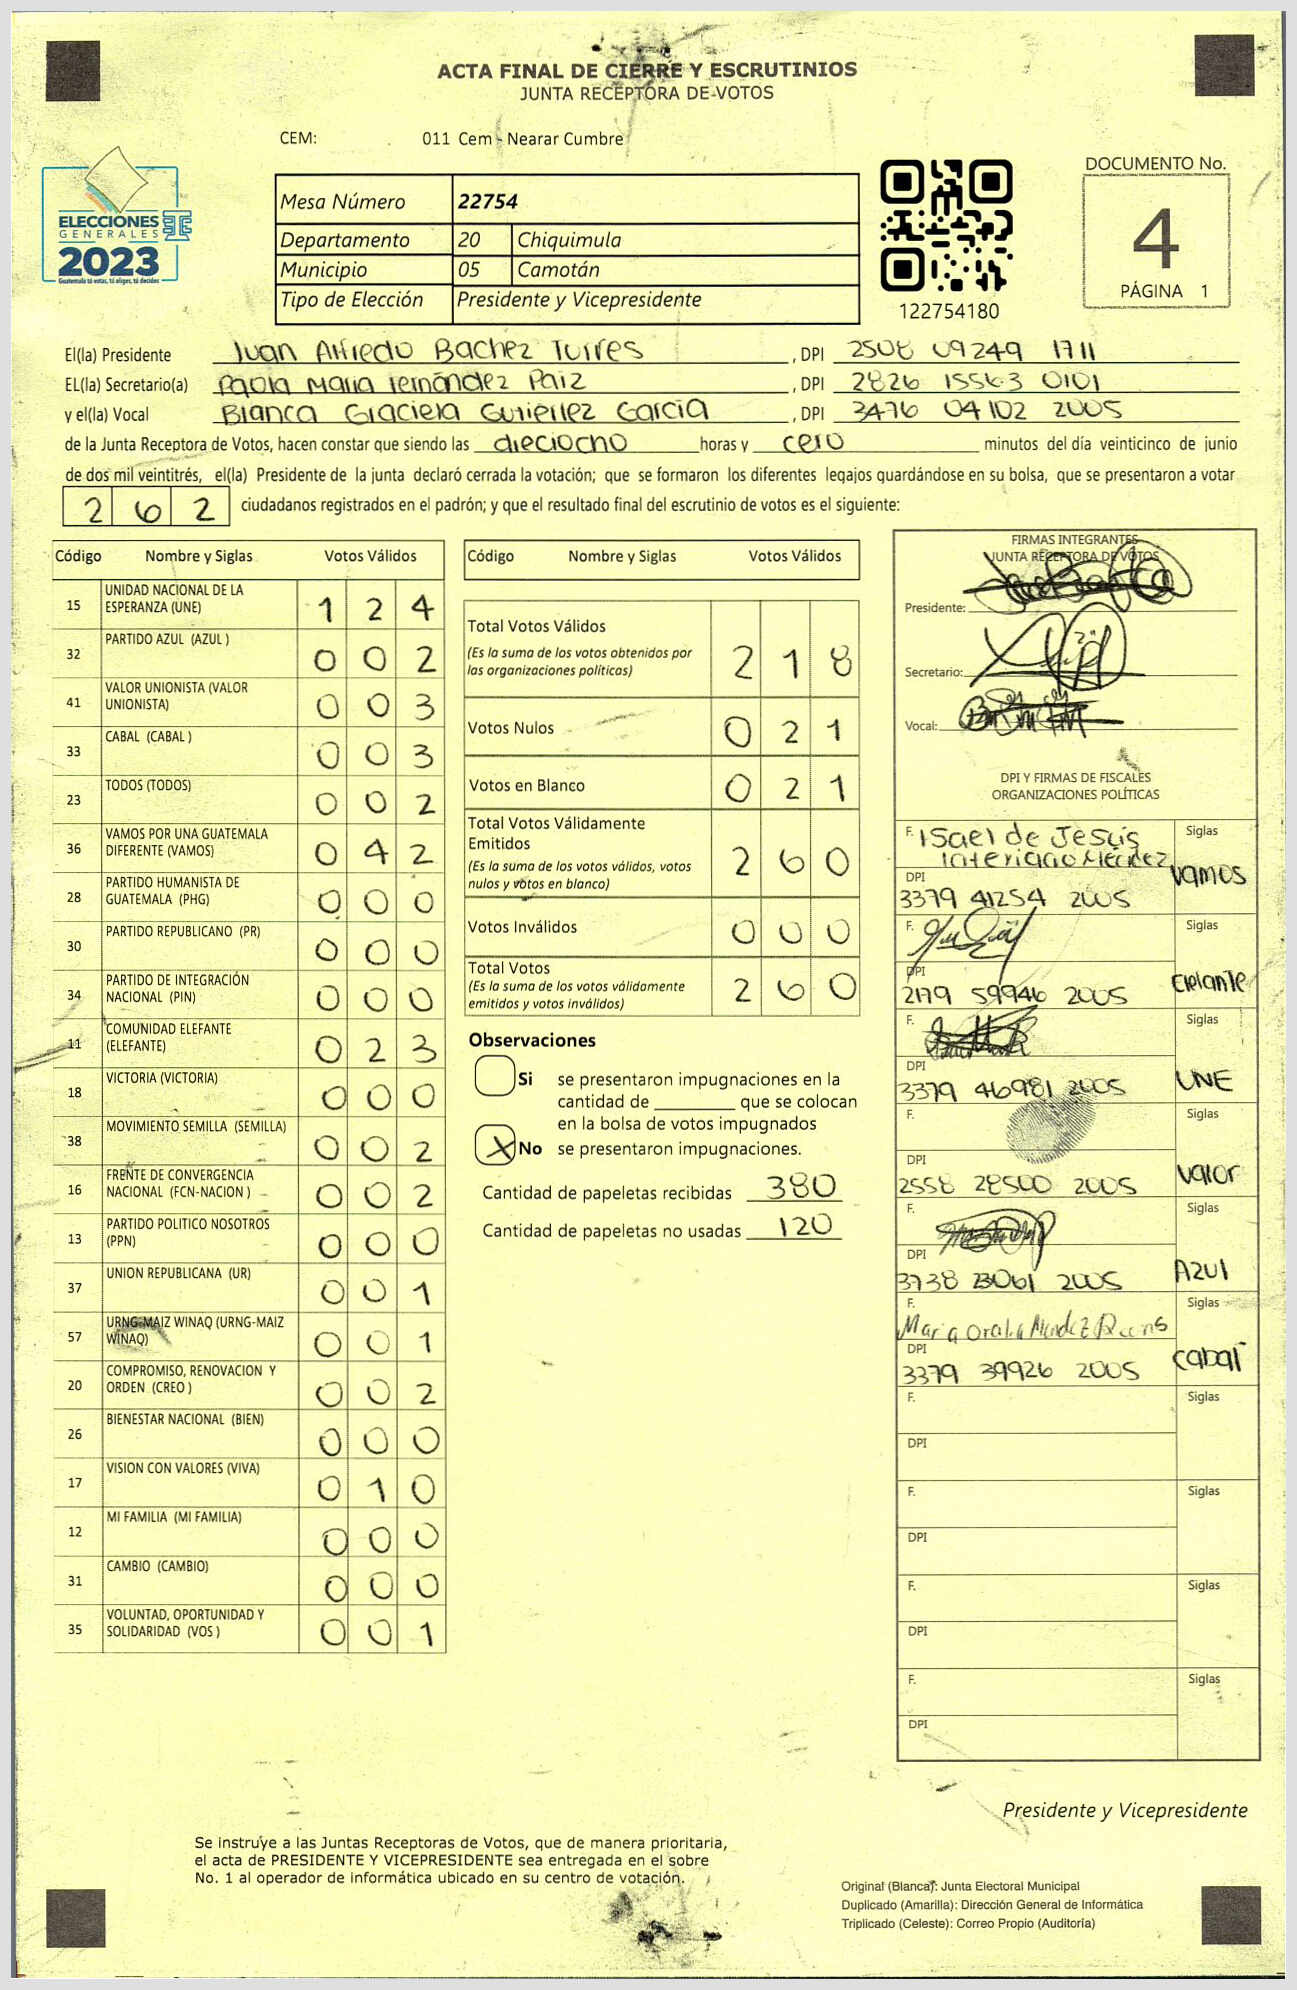 ACTA FINAL DE CIERRE Y ESCRUTINIOS
JUNTA RECEPTORA DE VOTOS
CEM: 011 Cem - Nearar Cumbre
ELECCIONES
GENERALES
2023
Guatemala tú votas, tú eliges, tú decides
Mesa Número 22754
Departamento 20 Chiquimula
Municipio 05 Camotán
Tipo de Elección Presidente y Vicepresidente
122754180
DOCUMENTO No.
4
PÁGINA 1
El(la) Presidente Juan Alfredo Bachez Turres , DPI 2508 09249 1711
EL(la) Secretario(a) Paola Maria Fernández Paiz , DPI 2826 15563 0101
y el(la) Vocal Blanca Graciela Gutierrez Garcia , DPI 3476 04102 2005
de la Junta Receptora de Votos, hacen constar que siendo las dieciocho horas y cero minutos del día veinticinco de junio
de dos mil veintitrés, el(la) Presidente de la junta declaró cerrada la votación; que se formaron los diferentes legajos guardándose en su bolsa, que se presentaron a votar
262 ciudadanos registrados en el padrón; y que el resultado final del escrutinio de votos es el siguiente:
Código Nombre y Siglas Votos Válidos
15 UNIDAD NACIONAL DE LA
ESPERANZA (UNE) 1 2 4
32 PARTIDO AZUL (AZUL ) 0 0 2
41 VALOR UNIONISTA (VALOR
UNIONISTA) 0 0 3
33 CABAL (CABAL ) 0 0 3
23 TODOS (TODOS) 0 0 2
36 VAMOS POR UNA GUATEMALA
DIFERENTE (VAMOS) 0 4 2
28 PARTIDO HUMANISTA DE
GUATEMALA (PHG) 0 0 0
30 PARTIDO REPUBLICANO (PR) 0 0 0
34 PARTIDO DE INTEGRACIÓN
NACIONAL (PIN) 0 0 0
11 COMUNIDAD ELEFANTE
(ELEFANTE) 0 2 3
18 VICTORIA (VICTORIA) 0 0 0
38 MOVIMIENTO SEMILLA (SEMILLA) 0 0 2
16 FRENTE DE CONVERGENCIA
NACIONAL (FCN-NACION ) 0 0 2
13 PARTIDO POLITICO NOSOTROS
(PPN) 0 0 0
37 UNION REPUBLICANA (UR) 0 0 1
57 URNG-MAIZ WINAQ (URNG-MAIZ
WINAQ) 0 0 1
20 COMPROMISO, RENOVACION Y
ORDEN (CREO ) 0 0 2
26 BIENESTAR NACIONAL (BIEN) 0 0 0
17 VISION CON VALORES (VIVA) 0 1 0
12 MI FAMILIA (MI FAMILIA) 0 0 0
31 CAMBIO (CAMBIO) 0 0 0
35 VOLUNTAD, OPORTUNIDAD Y
SOLIDARIDAD (VOS ) 0 0 1
Código Nombre y Siglas Votos Válidos
Total Votos Válidos
(Es la suma de los votos obtenidos por
las organizaciones políticas) 2 1 8
Votos Nulos 0 2 1
Votos en Blanco 0 2 1
Total Votos Válidamente
Emitidos
(Es la suma de los votos válidos, votos
nulos y votos en blanco) 2 6 0
Votos Inválidos 0 0 0
Total Votos
(Es la suma de los votos válidamente
emitidos y votos inválidos) 2 6 0
Observaciones
Si se presentaron impugnaciones en la
cantidad de ________ que se colocan
en la bolsa de votos impugnados
X No se presentaron impugnaciones.
Cantidad de papeletas recibidas 380
Cantidad de papeletas no usadas 120
FIRMAS INTEGRANTES
JUNTA RECEPTORA DE VOTOS
Presidente:
Secretario:
Vocal:
DPI Y FIRMAS DE FISCALES
ORGANIZACIONES POLÍTICAS
F. Isael de Jesús Siglas
Interiano Méndez Vamos
DPI
3379 41254 2005
F. Siglas
DPI Elefante
2179 59946 2005
F. Siglas
DPI UNE
3379 46981 2005
F. Siglas
DPI Valor
2558 28500 2005
F. Siglas
DPI AZUL
3738 23061 2005
F. Siglas
Maria Oralia Mendez
DPI Cabal
3379 39926 2005
F. Siglas
DPI
F. Siglas
DPI
F. Siglas
DPI
F. Siglas
DPI
Presidente y Vicepresidente
Se instruye a las Juntas Receptoras de Votos, que de manera prioritaria,
el acta de PRESIDENTE Y VICEPRESIDENTE sea entregada en el sobre
No. 1 al operador de informática ubicado en su centro de votación.
Original (Blanca): Junta Electoral Municipal
Duplicado (Amarilla): Dirección General de Informática
Triplicado (Celeste): Correo Propio (Auditoría)